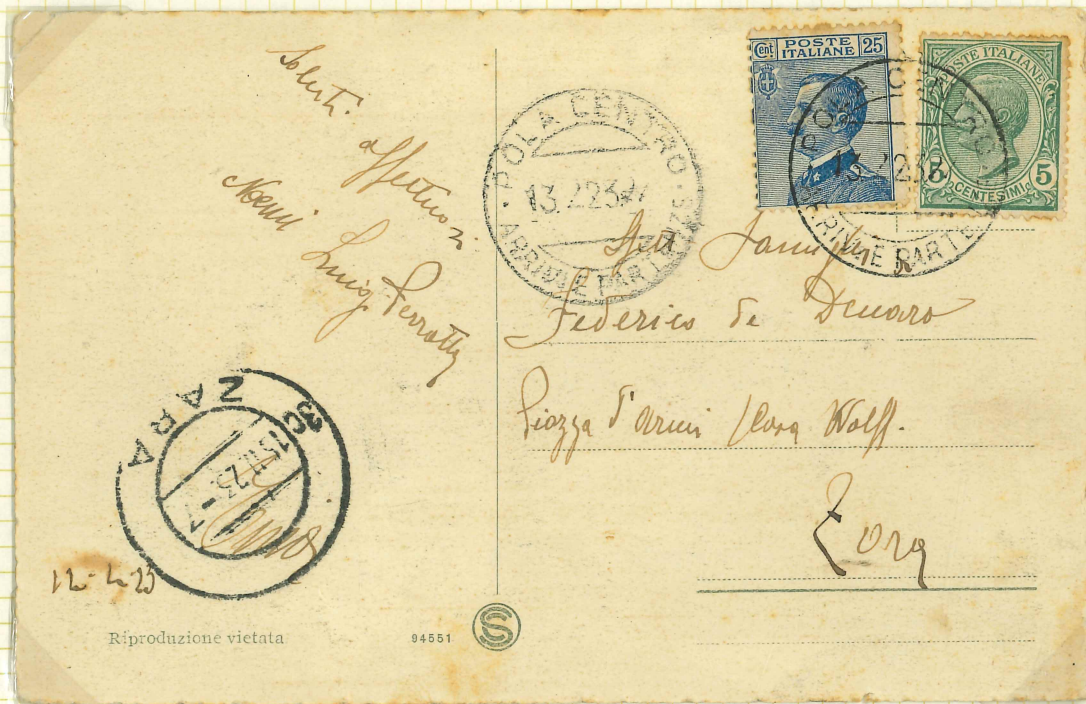 Saluti
affettuosi
Noemi
Luigi Perrotty
12-2-23
Riproduzione vietata
94551
CS
ZARA
3C
15.II.23.-7
POLA CENTRO
13.2.23
ARRIVI E PARTENZE
Cent. POSTE ITALIANE 25
POSTE ITALIANE
CENTESIMI 5
POLA CENTRO
13.2.23
ARRIVI E PARTENZE
Spett. Famiglia
Federico de Denaro
Piazza d'Armi / Casa Wolff.
Zara